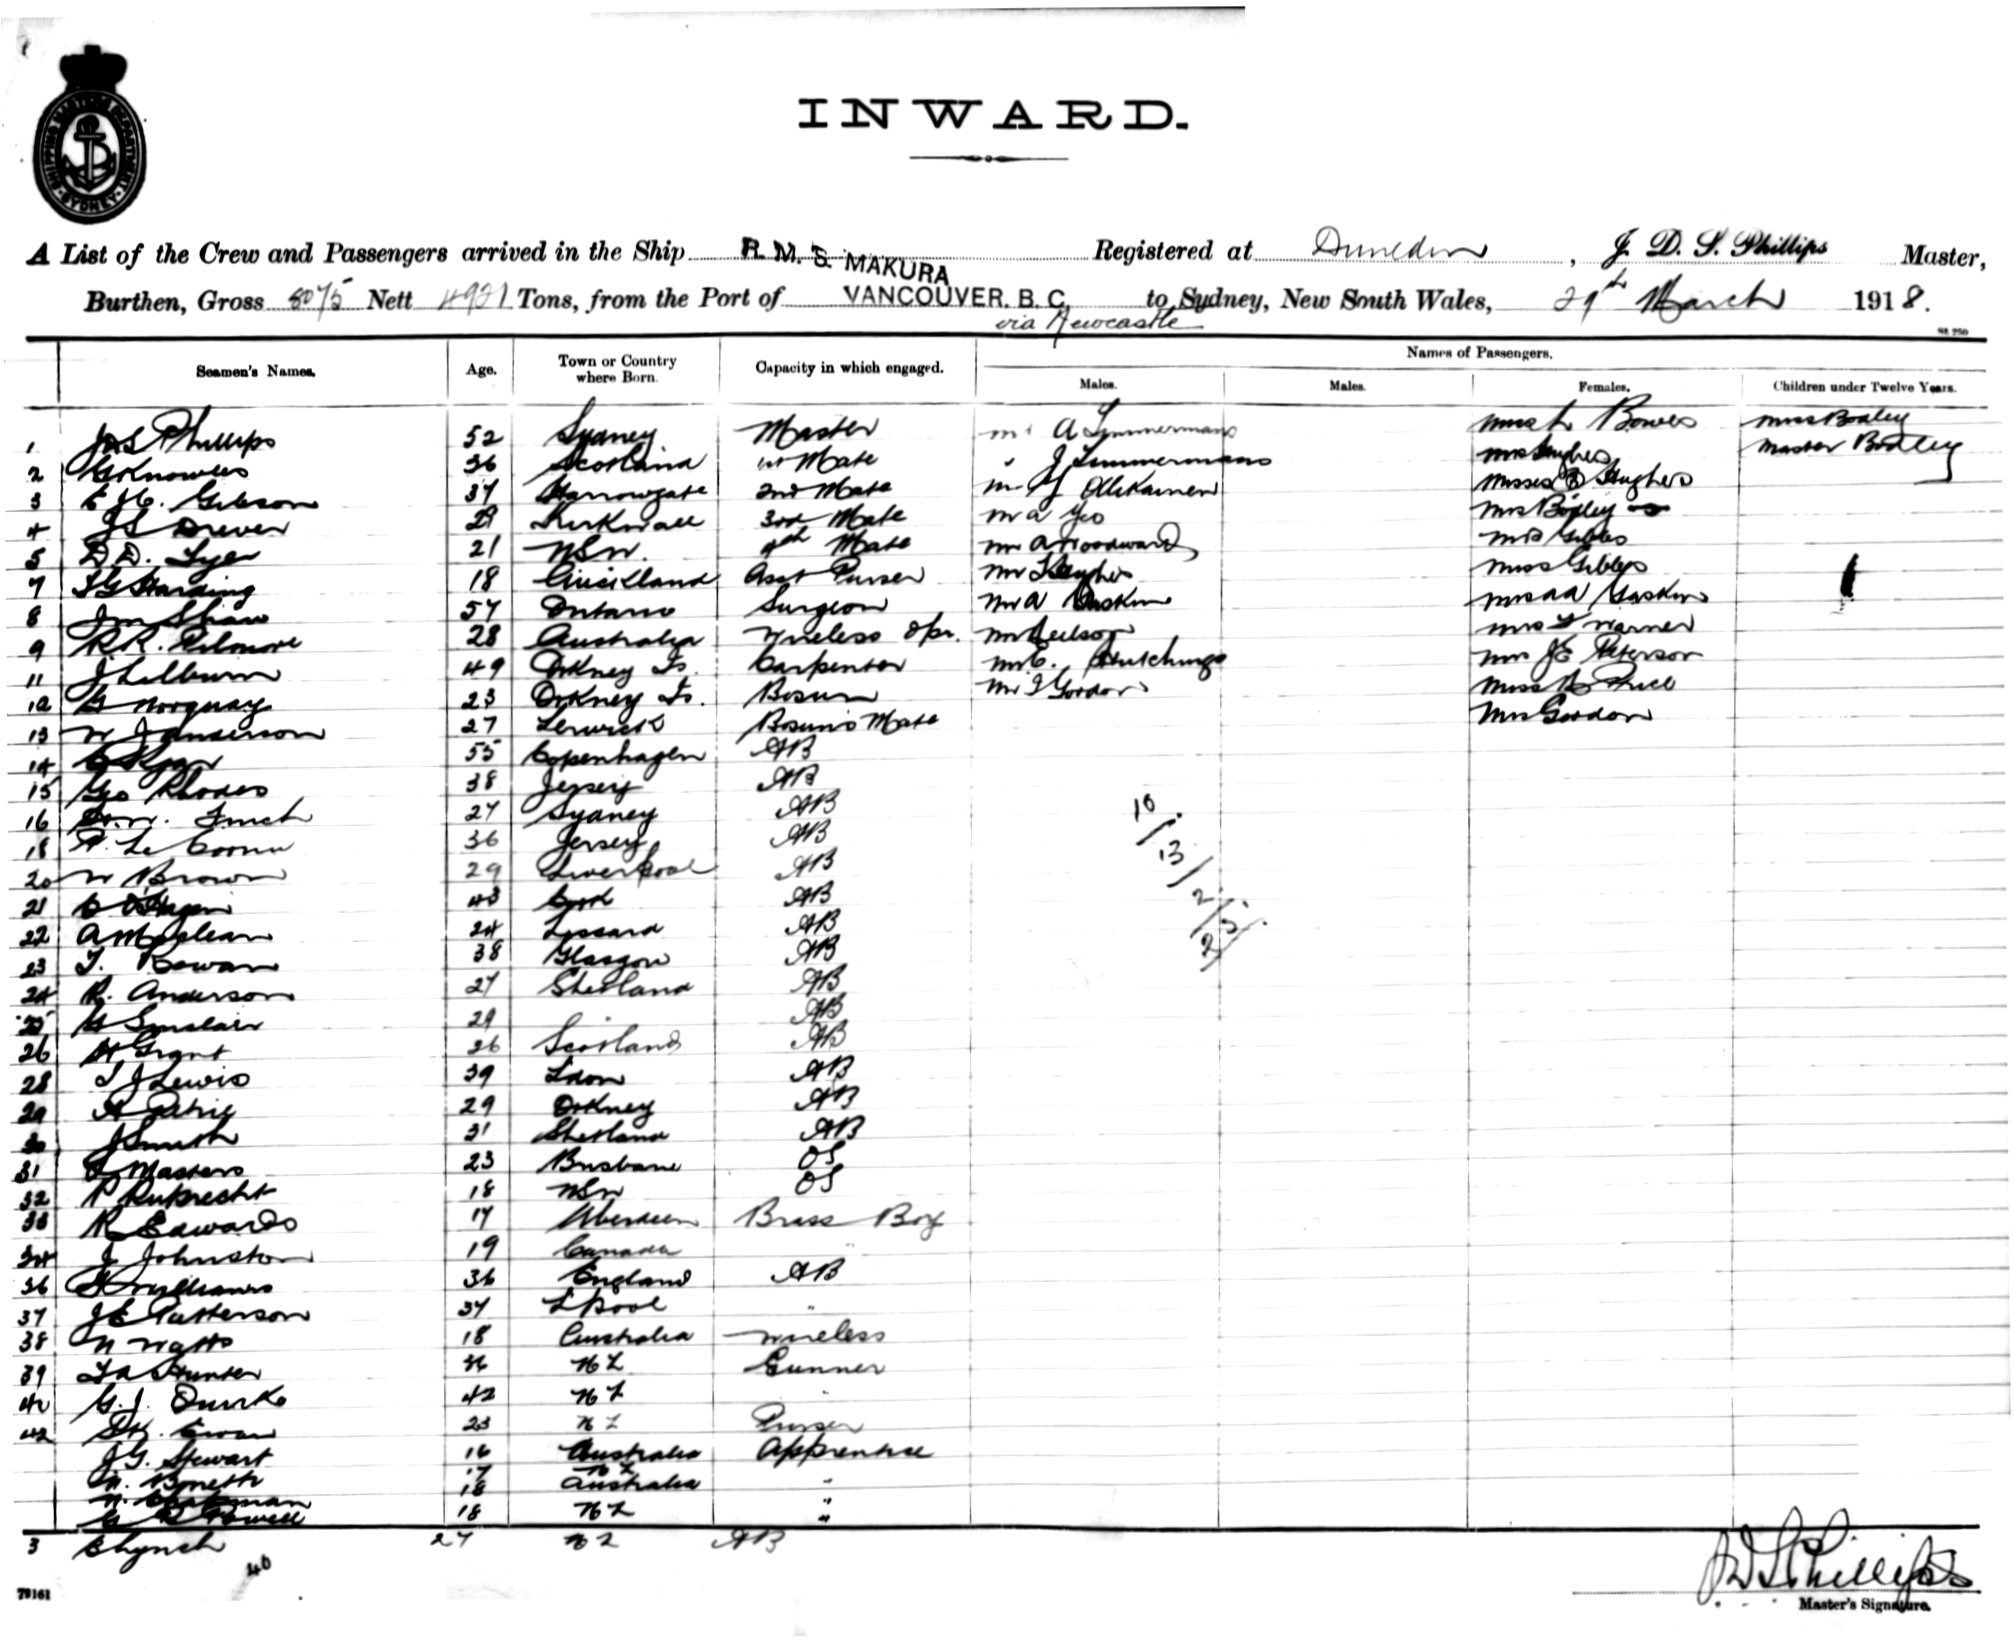 SHIPPING MASTERS DEPARTMENT SYDNEY
INWARD.
A List of the Crew and Passengers arrived in the Ship R. M. S. MAKURA Registered at Dunedin, J. D. S. Phillips Master,
Burthen, Gross 8075 Nett 4921 Tons, from the Port of VANCOUVER. B. C. to Sydney, New South Wales, 29th March 1918.
via Newcastle
Seamen's Names. Age. Town or Country where Born. Capacity in which engaged. Names of Passengers.
Males. Males. Females. Children under Twelve Years.
1 JDS Phillips 52 Sydney Master Mr A Timmermans Miss L Bowes Miss Boxley
2 G Knowles 36 Scotland 1st Mate " J Timmermans Mrs Hughes Master Boxley
3 E J C. Gibson 37 Harrowgate 2nd Mate Mr Y Ollikainen Misses Hughes
4 JS Drever 29 Kirkwall 3rd Mate Mr A Yeo Mrs Boxley
5 D D. Tyer 21 NSW. 4th Mate Mr A Woodward Mrs Gibbs
7 T G Harding 18 Auckland Asst Purser Mr Hughes Miss Gibbs
8 JM Shaw 57 Ontario Surgeon Mr A Gaskin Mrs A A Gaskin
9 R R. Pilmore 28 Australia Wireless Opr. Mr Neilson Mrs F Warner
11 J Lilburn 49 Orkney Is. Carpenter Mr C. Hutchings Mrs J E Peterson
12 G Norquay 23 Orkney Is. Bosun Mr J Gordon Miss B Price
13 W J Anderson 27 Lerwick Bosuns Mate Mrs Gordon
14 55 Copenhagen AB
15 Geo Rhodes 38 Jersey AB
16 Finch 27 Sydney AB
18 Le Cornu 36 Jersey AB
20 W Brown 29 Liverpool AB
21 C O'Hagan 43 Cork AB
22 A McLean 24 AB
23 T. Rowan 38 Glasgow AB
24 R. Anderson 27 Shetland AB
25 G Sinclair 29 AB
26 H Grant 26 Scotland AB
28 T J Lewis 39 Ldon AB
29 A Petrie 29 Orkney AB
30 J Smith 31 Shetland AB
31 Masters 23 Brisbane OS
32 P Ruprecht 18 NSW OS
33 R Edwards 17 Aberdeen Brass Boy
34 J Johnston 19 Canada "
36 Williams 36 England AB
37 J E Patterson 37 L'pool "
38 N Watts 18 Australia Wireless
39 Hunter 36 NZ Gunner
40 G. J. Quirke 42 NZ "
42 Ewan 23 NZ Purser
J G. Stewart 16 Australia Apprentice
N. Bonetti 17 NZ
N. Chapman 18 Australia "
G R Powell 18 NZ "
3 C Lynch 27 NZ AB
10
13
2
25
40
J D S Phillips
Master's Signature.
79161